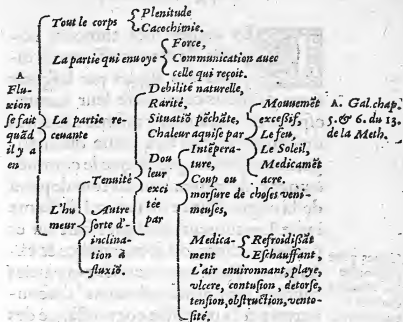 A
Flu-
xion
se fait
quãd
il y a
en
Tout le corps
Plenitude
Cacochimie.
La partie qui enuoye
Force,
Communication auec
celle qui reçoit.
La partie re-
ceuante
Debilité naturelle,
Rarité,
Situatiõ pẽchãte,
Chaleur aquise par
Mouuemẽt
excessif,
Le feu,
Le Soleil,
Medicamẽt
acre.
A. Gal. chap.
5. & 6. du 13.
de la Meth.
Dou
leur
exci
tée
par
Intẽpera-
ture,
Coup ou
morsure de choses veni-
meuses,
Medica-
ment
Refroidissãt
Eschauffant,
L'air enuironnant, playe,
vlcere, contusion, detorse,
tension, obstruction, vento-
sité.
L'hu
meur
Tenuité
Autre
sorte d'-
inclina-
tion à
fluxiõ.